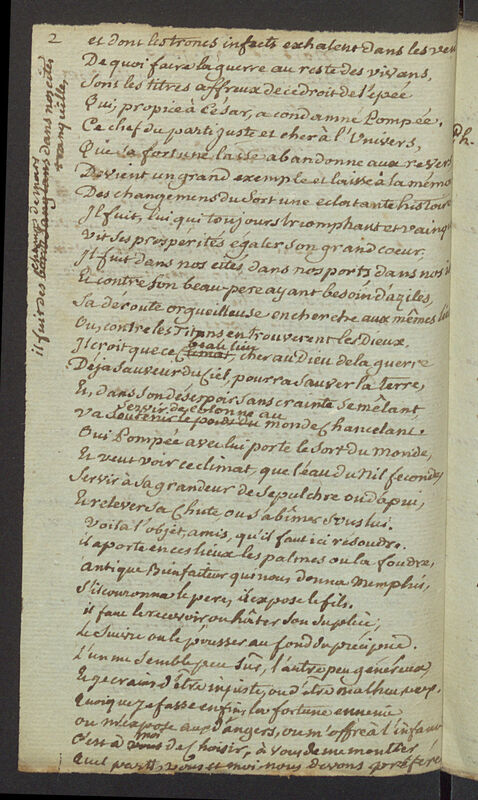 2
et dont les troncs infects exhalent dans les ven
De quoi faire la guerre au reste des vivans,
Sont les titres affreux de ce droit de l'épée
Qui, propice à César, a condamné Pompée.
Ce chef du parti juste et cher à l'Univers,
Ph.
Que sa fortune lasse abandonne aux revers
Devient un grand exemple et laisse à la mémoi
Des changemens du Sort une eclatante histoire
Il fuit, lui qui toujours triomphant et vainqu
Vit ses prospérités égaler son grand coeur.
Il fuit dans nos cités, dans nos ports dans nos
Et contre son beau-pere ayant besoin d'aziles,
Sa deroute orgueilleuse en cherche aux mêmes lieu
Ou, contre les Titans en trouverent les dieux.
Il croit que ce climat, cher au Dieu de la guerre
beau
Déja Sauveur du Ciel, pourra sauver la terre,
Et, dans son désespoir sans crainte se mêlant
servir de colonne au
Va soutenir le poids du monde Chancelant.
Oui Pompée avec lui porte le Sort du Monde,
Et veut voir ce climat, que l'eau du Nil feconde,
Servir à sa grandeur de sepulchre ou d'apui,
Et relever sa Chute, ou s'abîmer sous lui.
Voila l'objet, amis, qu'il faut ici resoudre.
il aporte en ces lieux les palmes ou la foudre,
Antique Bienfaiteur qui nous donna Memphis,
S'il couronna le pere, il expose le fils.
il faut le recevoir ou hâter son suplice,
Le Suivre ou le pousser au fond du précipice.
L'un me semble peu sûr, l'autre peu généreux,
Et je crains d'être injuste, ou d'être malheureux.
Quoique je fasse enfin, la fortune ennemie
ou m'expose aux dangers, ou m'offre à l'infamie
moi
C'est à vous de Choisir, à vous de me montrer
Quel parti, vous et moi nous devons préférer
il fuit des dans nos cités
tranquilles